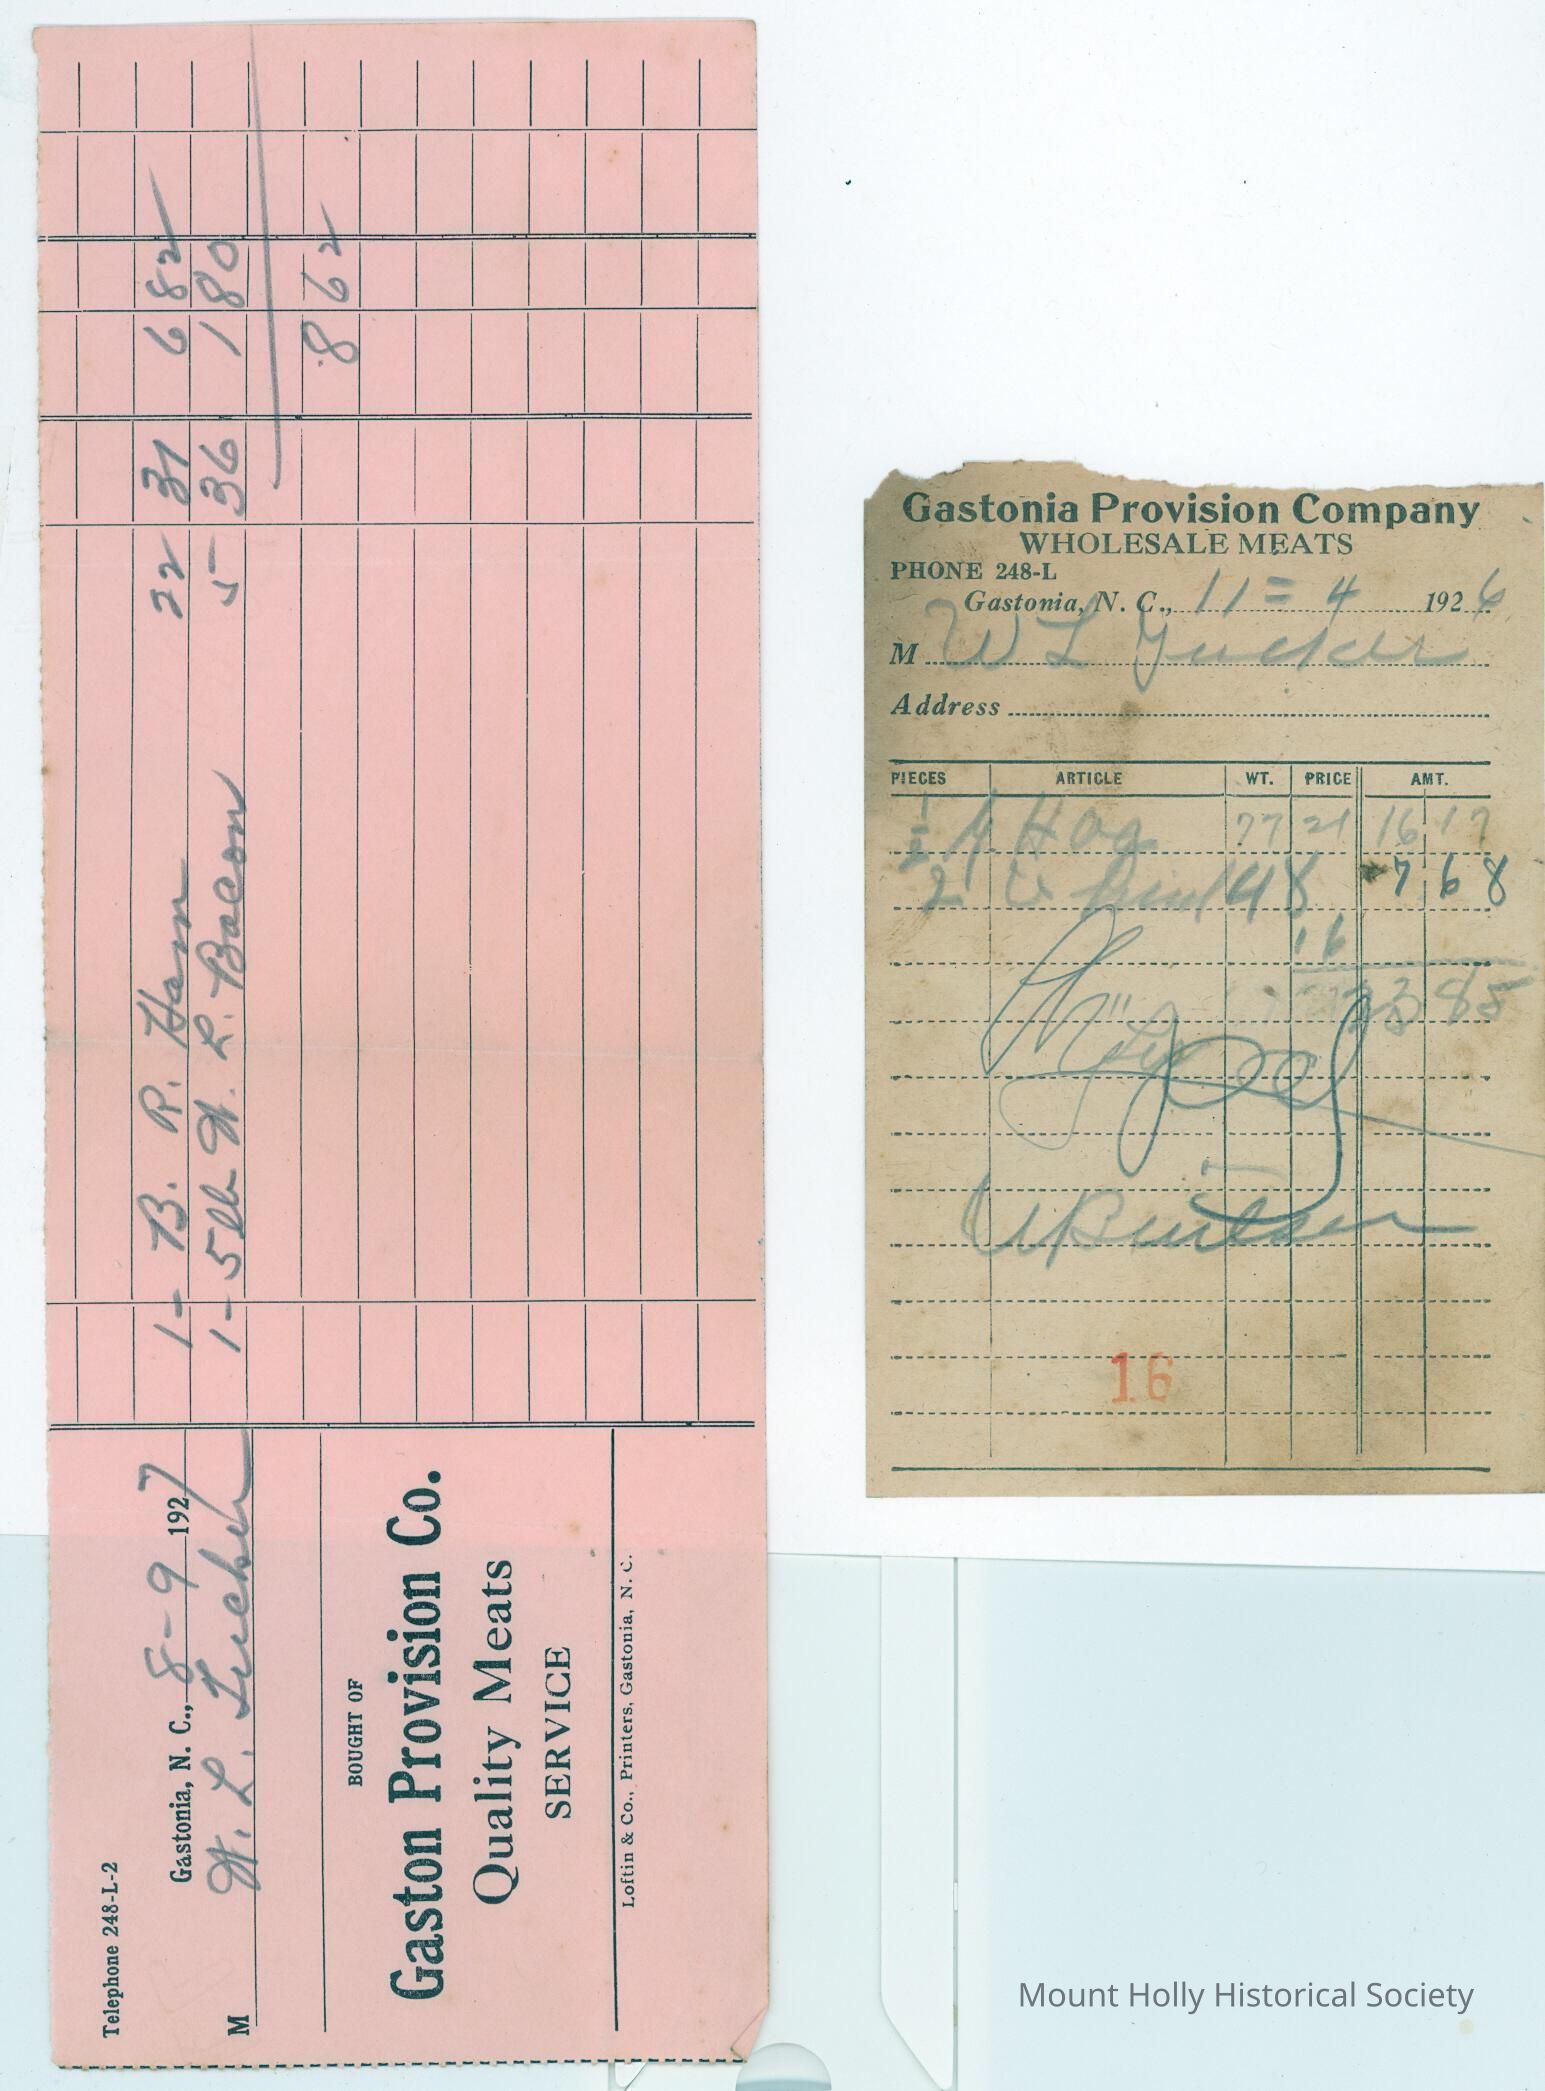 Telephone 248-L-2
Gastonia, N. C., 8-9 1927
M W. L. Tucker
BOUGHT OF
Gaston Provision Co.
Quality Meats
SERVICE
Loftin & Co., Printers, Gastonia, N. C.
1- B. R. Ham 22 31 6 82
1- 5 lb W. L. Bacon 5 36 1 80
8 62
Gastonia Provision Company
WHOLESALE MEATS
PHONE 248-L
Gastonia, N. C., 11=4 1926
M W L Tucker
Address
PIECES ARTICLE WT. PRICE AMT.
1/2 Hog 77 21 16 17
2 48 7 68
16
23 85
16
Mount Holly Historical Society